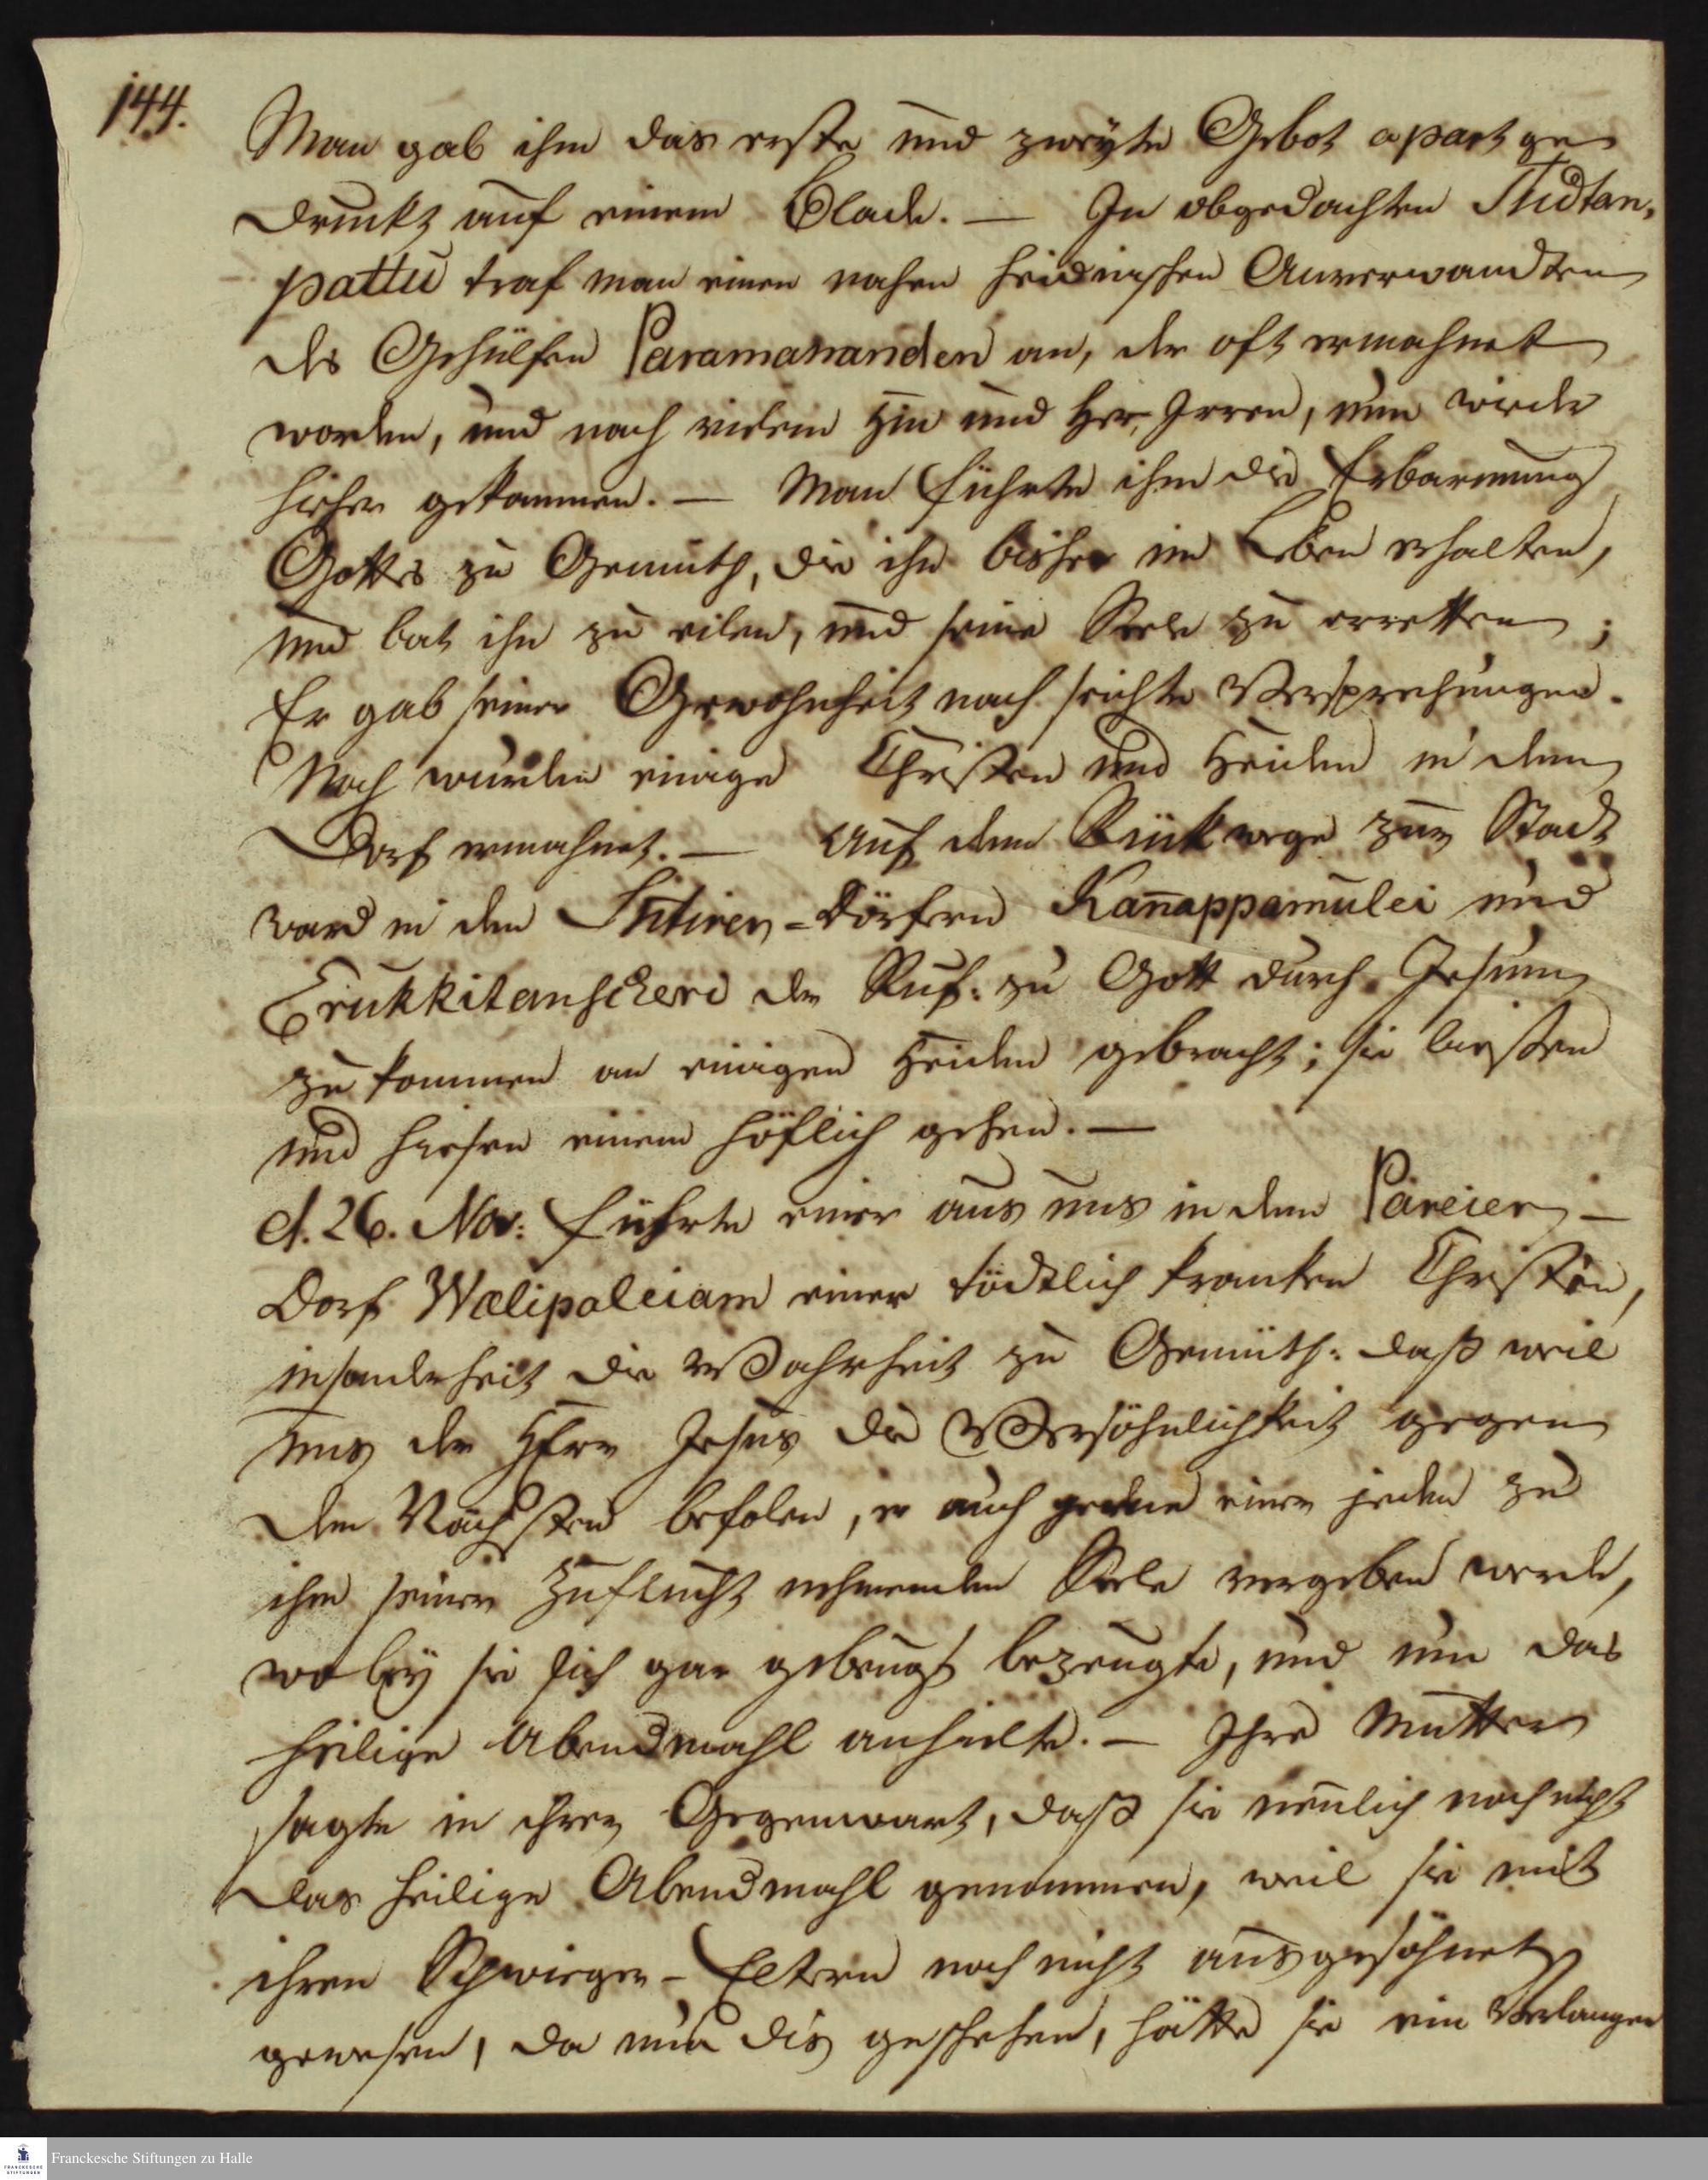 144.
Man gab ihm das erste und zweyte Gebot apart ge
druckt auf einem Blade. — In obgedachten Sittan,
pattu traf man einen nahen heidnischen Anverwandten
des Gehülfen Paramananden an, der oft ermahnet
worden, und nach vielem Hin und Her, Irren, nun wieder
hieher gekommen. — Man führte ihm die Erbarmung
Gottes zu Gemüth, die ihn bisher im Leben erhalten,
und bat ihn zu eilen, und seine Seele zu erretten;
Er gab seiner Gewohnheit nach seichte Versprechungen.
Noch wurden einige Christen und Heiden in dem
Dorf ermahnet. — Auf dem Rückwege zur Stadt
ward in den Dörfern Kanappamulei und
Erukkitanscheri der Ruf: zu Gott durch Jesum
zu kommen an einigen Heiden gebracht; sie liessen
und hiesen einem höflich gehen. —
d. 26. Nov: führte einer aus uns in dem Pareier –
Dorf Welipaleiam einer tödtlich kranken Christin,
insonderheit die Wahrheit zu Gemüth: daß weil
uns der HErr Jesus die Versöhnlichkeit gegen
den Nächsten befolen, er auch gerne einer jeden zu
ihm seiner Zuflucht nehmenden Seele vergeben werde,
wobey sie sich gar gebeugt bezeugte, und um das
heilige Abendmahl anhielte. — Ihre Mutter
sagte in ihrer Gegenwart, daß sie neulich noch nicht
das heilige Abendmahl genommen, weil sie mit
ihren Schwieger-Eltern noch nicht ausgesöhnet
gewesen, da nun dis geschehen, hätte sie ein Verlangen
Franckesche Stiftungen zu Halle